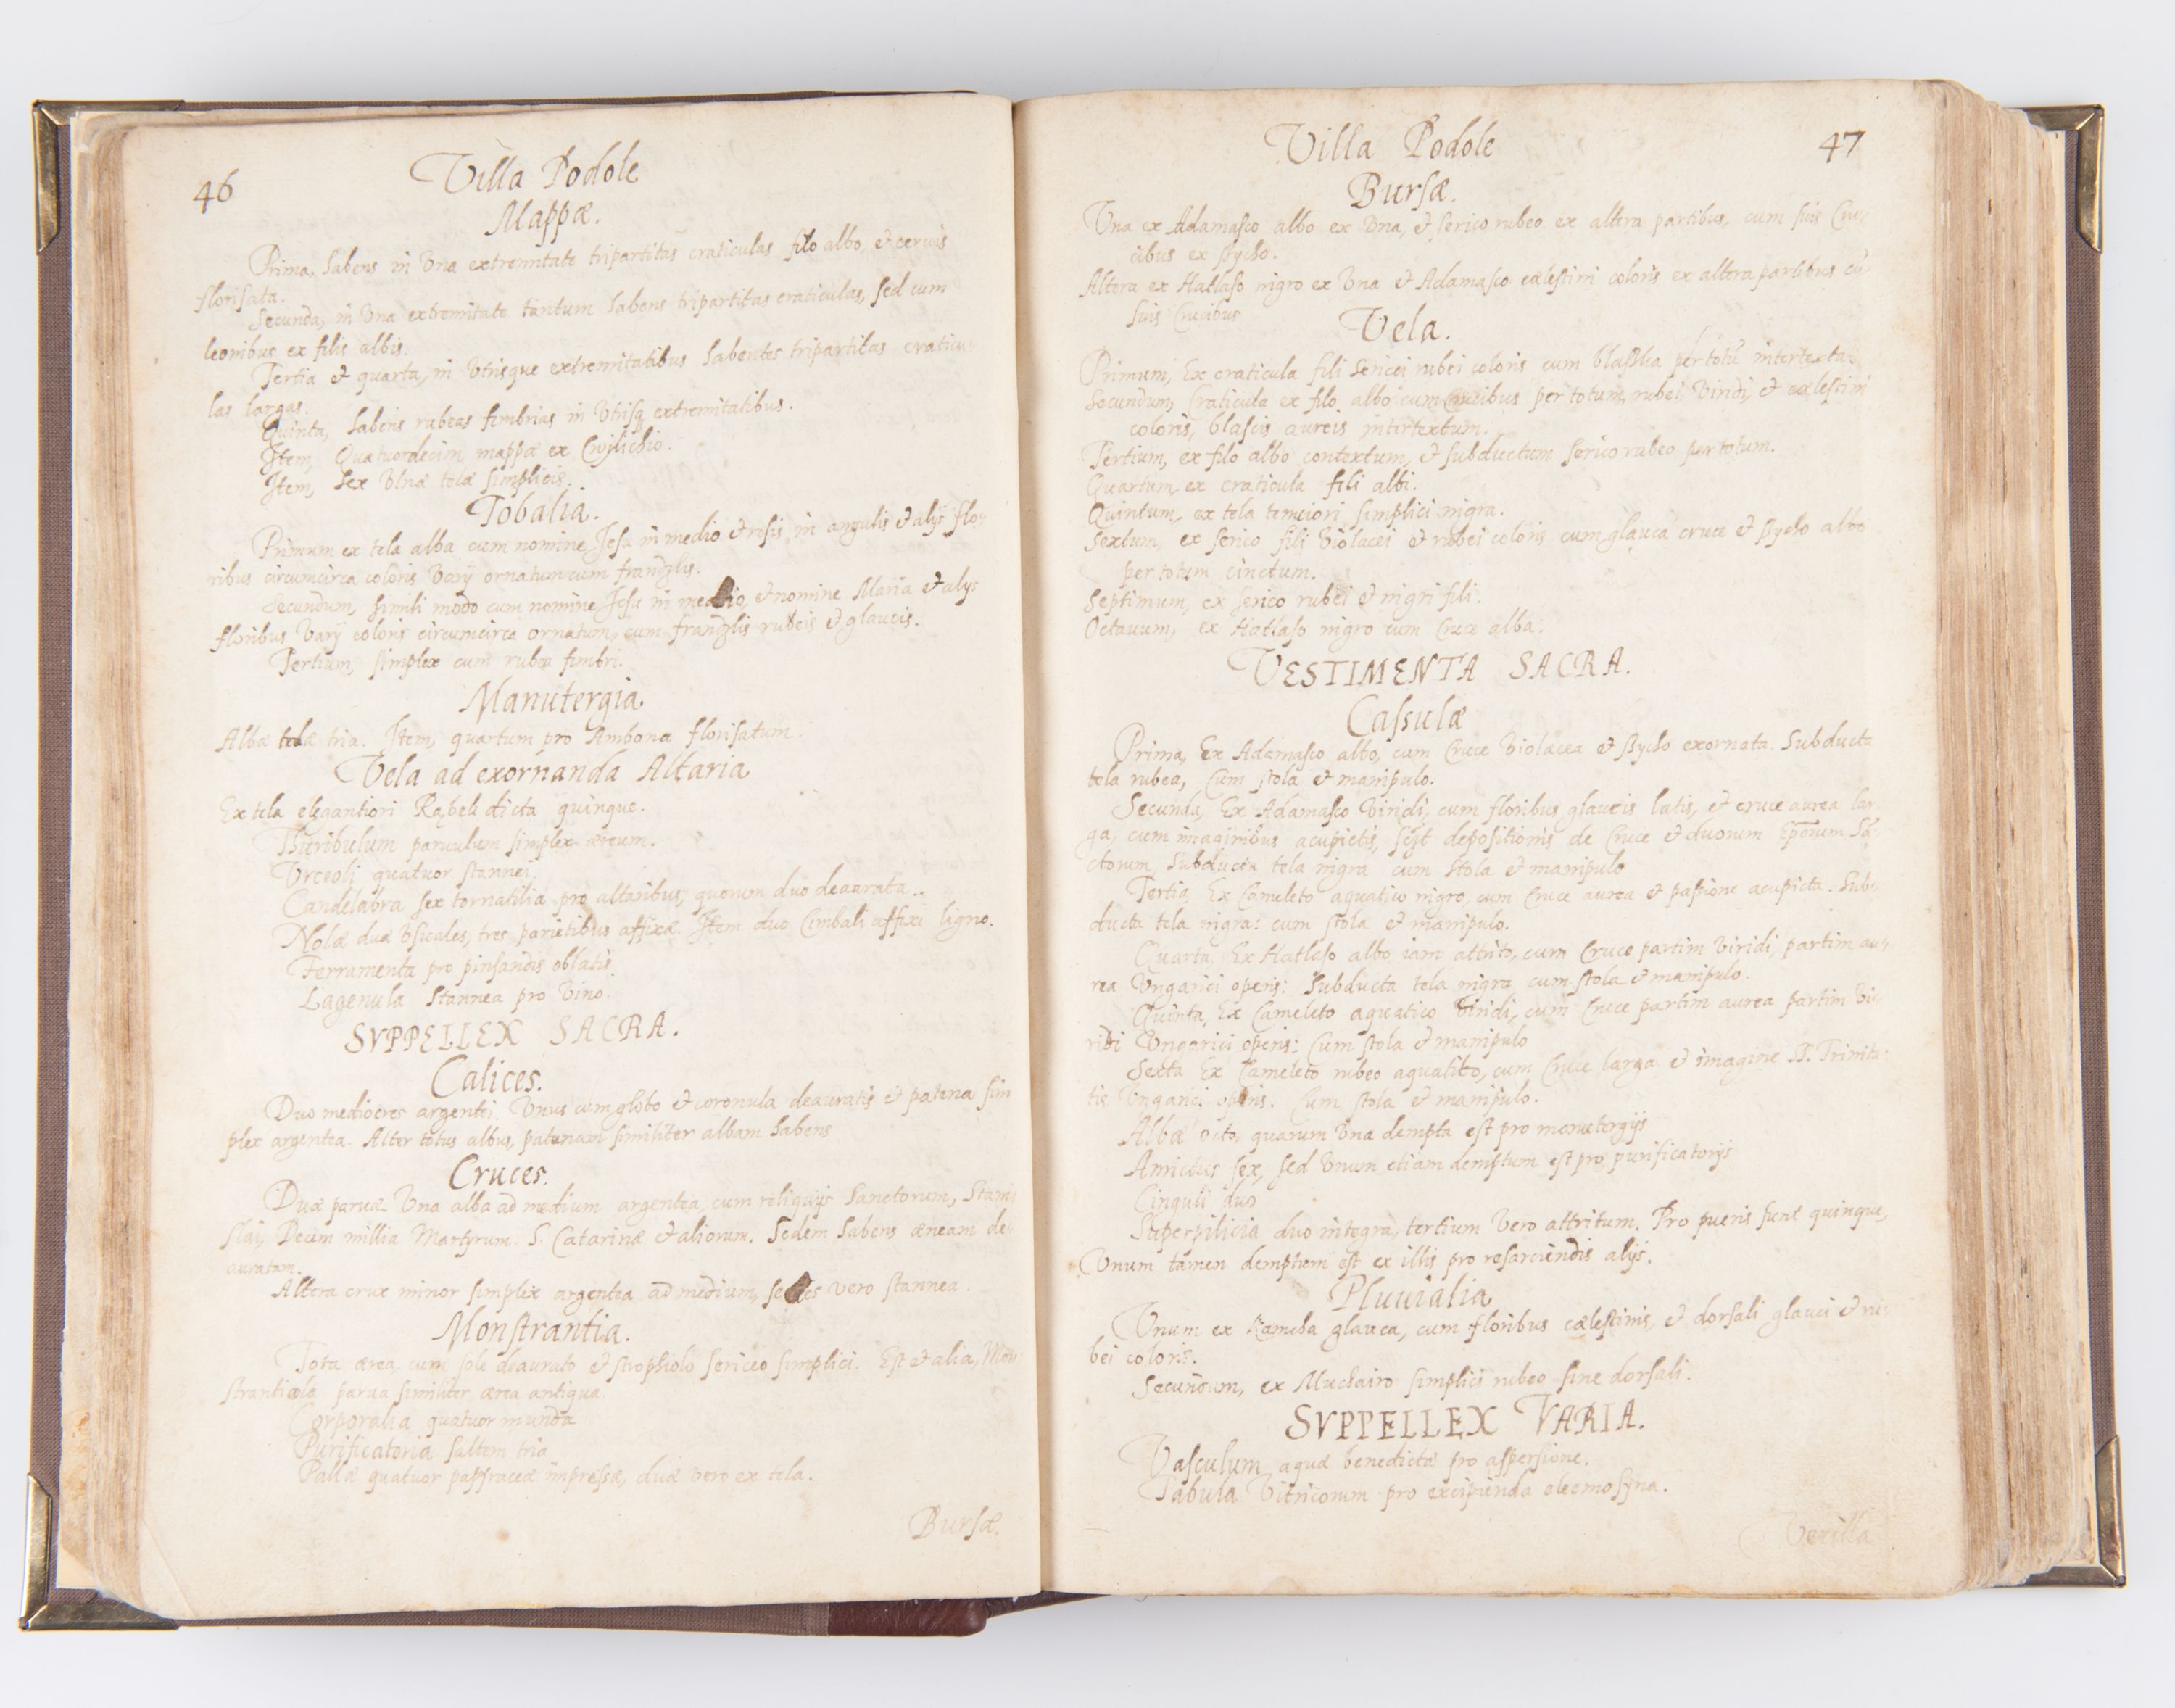 46
Villa Podole
Mappæ.
Prima, habens in Vna extremitate tripartitas craticulas filo albo, et cervis
florisata.
Secunda, in Vna extremitate tantum habens tripartitas craticulas, sed cum
leonibus ex filis albis.
Tertia et quarta, in Vtrisque extremitatibus habentes tripartitas craticu-
las largas.
Quinta, habens rubeas fimbrias in Vtrisq extremitatibus.
Item, Quatuordecim mappæ ex Cwylichio.
Item, sex Vlnæ telæ simplicis.
Tobalia.
Primum ex tela alba cum nomine Jesu in medio et rosis in angulis et alijs flo-
ribus circumcirca coloris Varij ornatum cum frandzlis.
Secundum, simili modo cum nomine Jesu in medio, et nomine Maria et alijs
floribus Varij coloris circumcirca ornatum, cum frandzlis rubeis et glaucis.
Tertium, simplex cum rubea fimbri.
Manutergia
Albæ telæ tria. Item, quartum pro Ambona florisatum.
Vela ad exornanda Altaria
Ex tela elegantiori Rąbek dicta quinque.
Thuribulum paruulum simplex æreum.
Vrceoli quatuor stannei.
Candelabra sex tornatilia pro altaribus, quorum duo deaurata.
Nolæ duæ Vsuales, tres parietibus affixæ. Item duo Cimbali affixi ligno.
Ferramenta pro pinsandis oblatis.
Lagenula stannea pro Vino.
SVPPELLEX SACRA.
Calices.
Duo mediocres argentei. Vnus cum globo et coronula deauratis et patena sim
plex argentea. Alter totus albus, patenam similiter albam habens
Cruces.
Duæ paruæ. Vna alba ad medium argentea, cum reliquijs Sanctorum, Stani
slai, Decem millia Martyrum. S. Catarinæ et aliorum. Sedem habens æneam de-
auratam.
Altera crux minor simplex argentea ad medium, sedes vero stannea.
Monstrantia.
Tota ærea, cum sole deaurato et strophiolo sericeo simplici. Est et alia, Mon
strantiola parua similiter ærea antiqua.
Corporalia quatuor munda
Purificatoria saltem tria
Pallæ quatuor papyraceæ impressæ, duæ vero ex tela.
Bursæ.
47
Villa Podole
Bursæ.
Vna ex Adamasco albo ex Vna, et serico rubeo ex altera partibus, cum suis Cru-
cibus ex pstycho.
Altera ex Hatlaso nigro ex Vna et Adamasco cælestini coloris ex altera partibus cū
suis Crucibus
Vela.
Primum, Ex craticula fili sericei rubei coloris cum blaszka per totū intertexta.
Secundum, Craticula ex filo albo cum Crucibus per totum, rubei, Viridi, et cælestini
coloris, blascis aureis intertextum.
Tertium, ex filo albo contextum, et subductum serico rubeo per totum.
Quartum ex craticula fili albi.
Quintum, ex tela tenuiori simplici nigra.
Sextum, ex serico fili Violacei et rubei coloris cum glauca cruce et pstycho albo
per totum cinctum.
Septimum, ex serico rubei et nigri fili.
Octauum, ex Hatlaso nigro cum Cruce alba.
VESTIMENTA SACRA.
Cassulæ
Prima, Ex Adamasco albo, cum Cruce Violacea et pstycho exornata. Subducta
tela rubea, Cum stola et manipulo.
Secunda, Ex Adamasco Viridi, cum floribus glaucis latis, et cruce aurea lar
ga, cum imaginibus acupictis, scilt depositionis de Cruce et duorum Eporum Sā
ctorum, Subducta tela nigra cum Stola et manipulo
Tertia, Ex Cameleto aquatico nigro, cum Cruce aurea et passione acupicta. Sub-
ducta tela nigra: cum stola et manipulo.
Quarta, Ex Hatlaso albo iam attrito, cum Cruce partim Viridi, partim au-
rea Vngarici operis: Subducta tela nigra cum stola et manipulo.
Quinta, Ex Cameleto aquatico Viridi, cum Cruce partim aurea partim Vi-
ridi Vngarici operis: Cum stola et manipulo
Sexta Ex Cameleto rubeo aquatico, cum Cruce larga et imagine SS. Trinita-
tis Vngarici operis. Cum stola et manipulo.
Albæ octo, quarum Vna dempta est pro manutergijs
Amictus sex, sed Vnum etiam demptum est pro purificatorijs
Cinguli duo
Superpilicia duo integra, tertium Vero attritum. Pro pueris sunt quinque,
Vnum tamen demptum est ex illis pro resarciendis alijs.
Pluuialia
Vnum ex Kamcha glauca, cum floribus cælestinis, et dorsali glauci et ru-
bei coloris.
Secundum, ex Muchairo simplici rubeo sine dorsali.
SVPPELLEX VARIA.
Vasculum aquæ benedictæ pro aspersione.
Tabula Vitricorum pro excipienda eleemosyna.
Vexilla